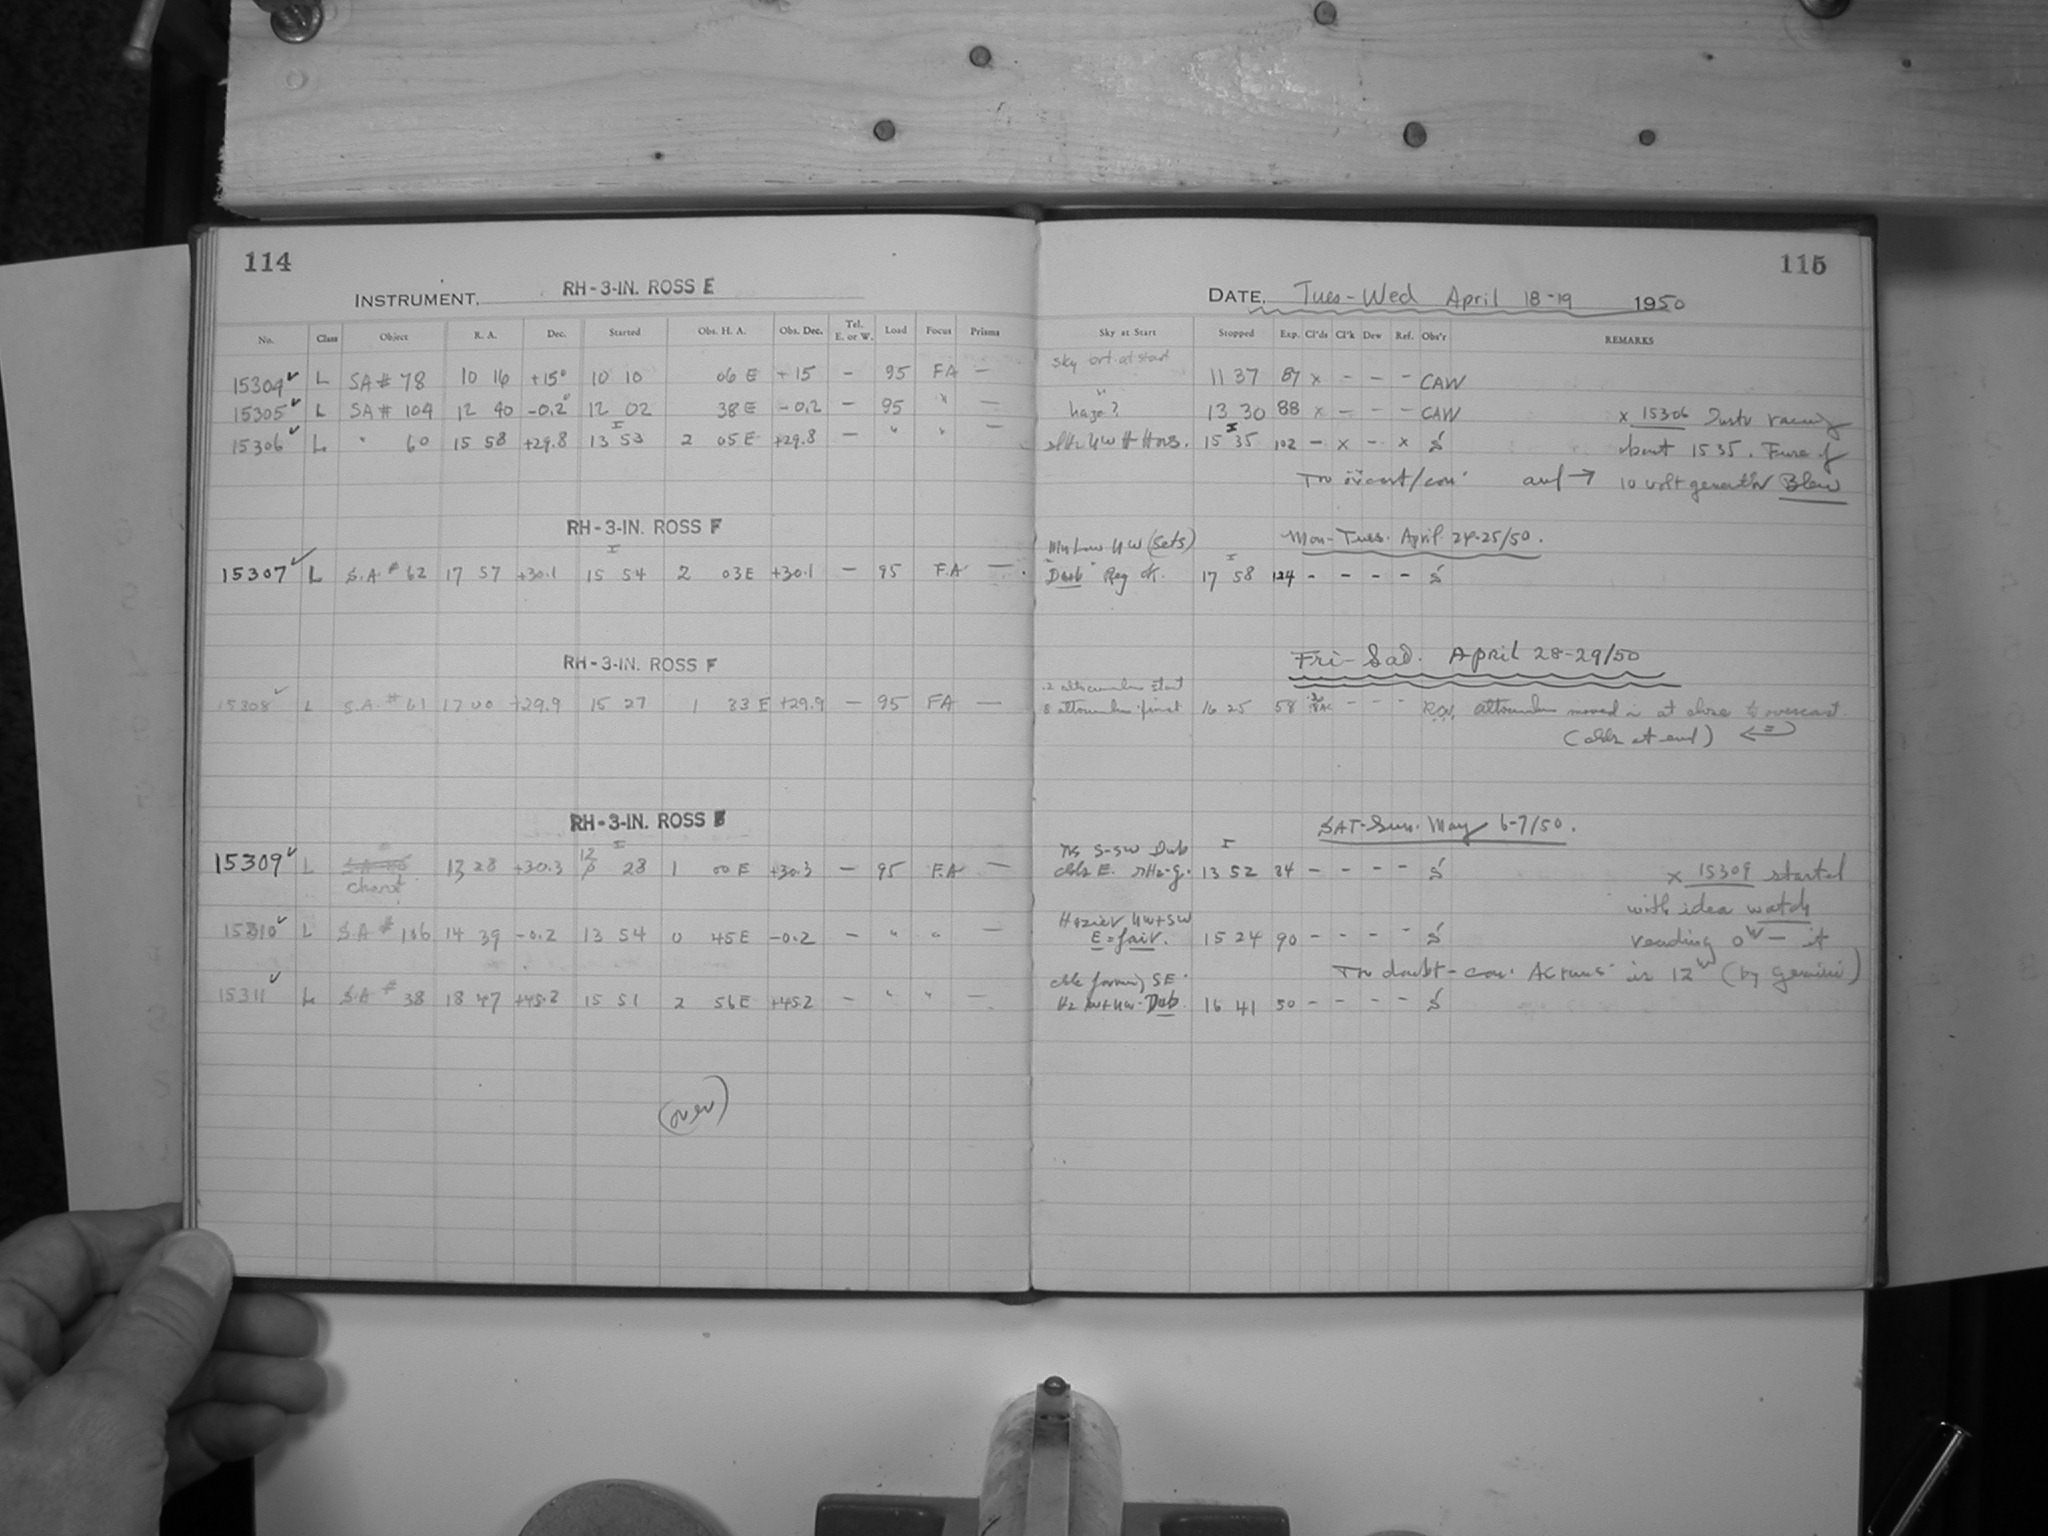 114
INSTRUMENT, RH-3-IN. ROSS E
No. Class Object R. A. Dec. Started Obs. H. A. Obs. Dec. Tel. E. or W. Load Focus Prisms
15304 ✓ L SA# 78 10 16 +15° 10 10 06 E +15 - 95 FA -
15305 ✓ L SA# 104 12 40 -0.2° 12 02 38 E -0.2 - 95 " -
15306 ✓ L " 60 15 58 +29.8 13 53 2 05 E +29.8 - " " -
RH-3-IN. ROSS F
15307 ✓ L S.A.# 62 17 57 +30.1 15 54 2 03E +30.1 - 95 F.A -
RH-3-IN. ROSS F
15308 ✓ L S.A.# 61 17 00 +29.9 15 27 1 33 E +29.9 - 95 FA -
RH-3-IN. ROSS
15309 ✓ L 13 28 +30.3 12 28 1 00 E +30.3 - 95 F.A -
chart
15310 ✓ L S.A# 106 14 39 -0.2 13 54 0 45E -0.2 - " " -
15311 ✓ L S.A# 38 18 47 +45.2 15 51 2 56E +45.2 - " " -
(over)
115
DATE, Tues-Wed April 18-19 1950
Sky at Start Stopped Exp. Cl'ds Cl'k Dew Ref. Obs'r REMARKS
sky at start
11 37 87 x - - - CAW
haze? 13 30 88 x - - - CAW x 15306 Instr racing
15 35 102 - x - x S about 1535. Fuse of
10 volt generator Blew
Mon-Tues. April 24-25/50.
Low NW (sets)
Reg OK. 17 58 124 - - - - S
Fri-Sat. April 28-29/50
altocumulus start
altocumulus finish 16 25 58 - - - altocumulus moved in at close to overcast.
(at end)
SAT-Sun. May 6-7/50.
S-SW
E. 13 52 84 - - - - S x 15309 started
with idea watch
Hazier NW+SW
E = fair. 15 24 90 - - - - S reading 0 - it
is 12 (by Gemini)
forming SE
16 41 50 - - - - S